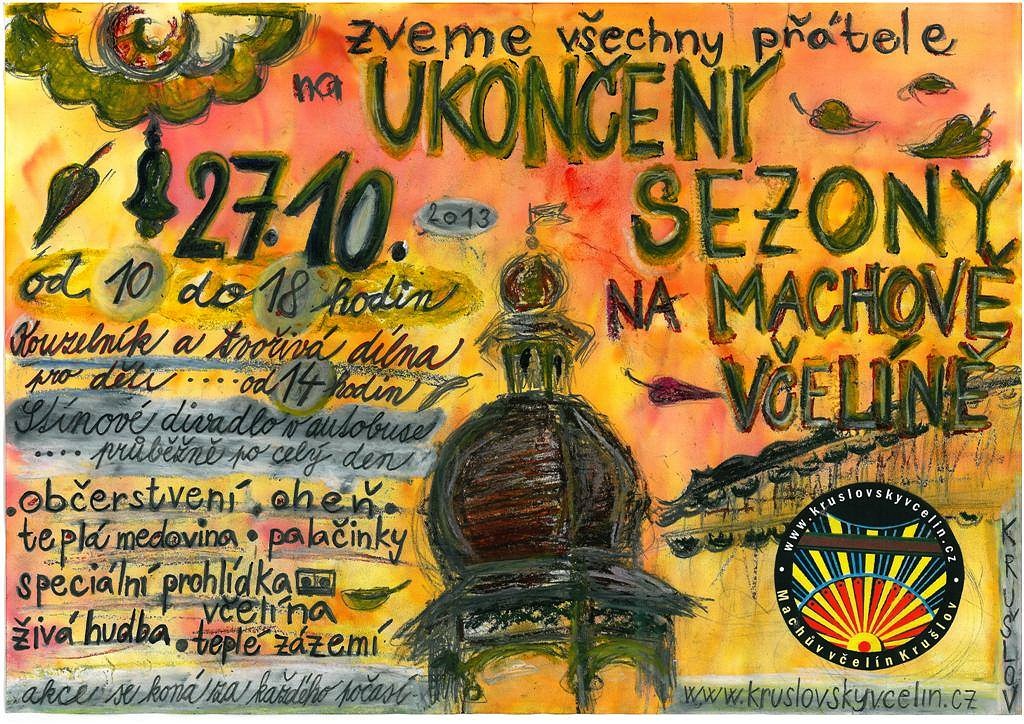 zveme všechny přátele
na UKONČENÍ
SEZONY
NA MACHOVĚ
VČELÍNĚ
27.10. 2013
od 10 do 18 hodin
Kouzelník a tvořivá dílna
pro děti .... od 14 hodin
Stínové divadlo v autobuse
.... průběžně po celý den
.občerstvení.oheň.
teplá medovina • palačinky
speciální prohlídka
včelína
živá hudba • teplé zázemí
akce se koná za každého počasí
www.kruslovskyvcelin.cz
• Machův včelín Krušlov •
KRUŠLOV
www.kruslovskyvcelin.cz